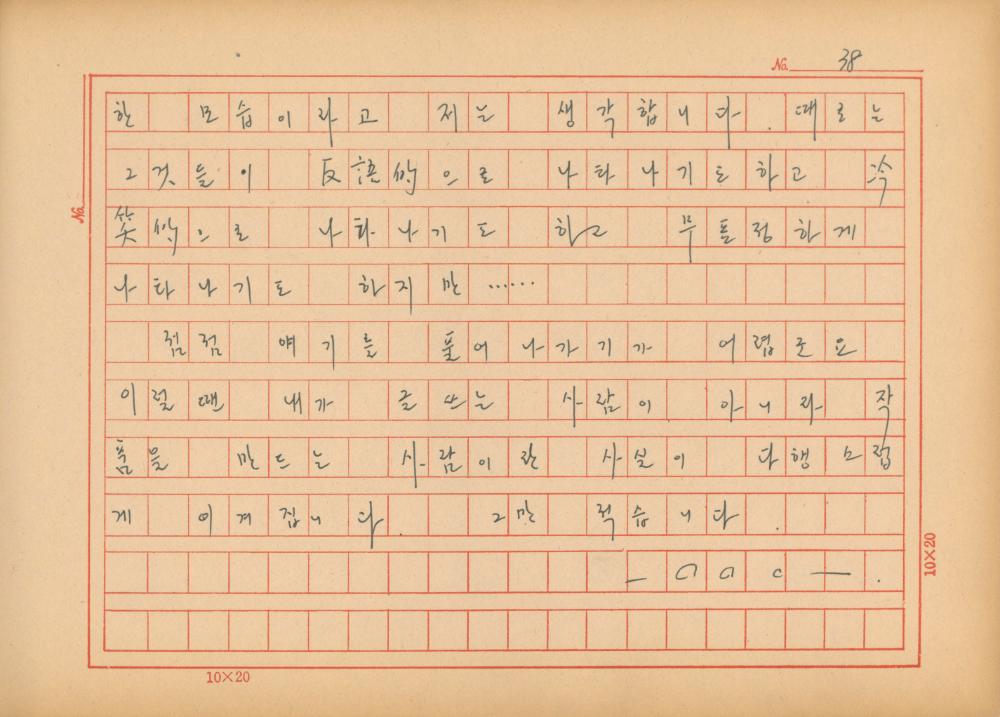 No. 38
한 모습이라고 저는 생각합니다. 때로는
그것들이 反語的으로 나타나기도하고 冷
No.
笑的으로 나타나기도 하고 무표정하게
나타나기도 하지만……
점점 얘기를 풀어 나가기가 어렵군요
이럴땐 내가 글쓰는 사람이 아니라 작
품을 만드는 사람이란 사실이 다행스럽
게 여겨집니다. 그만 적습니다.
10×20
10×20